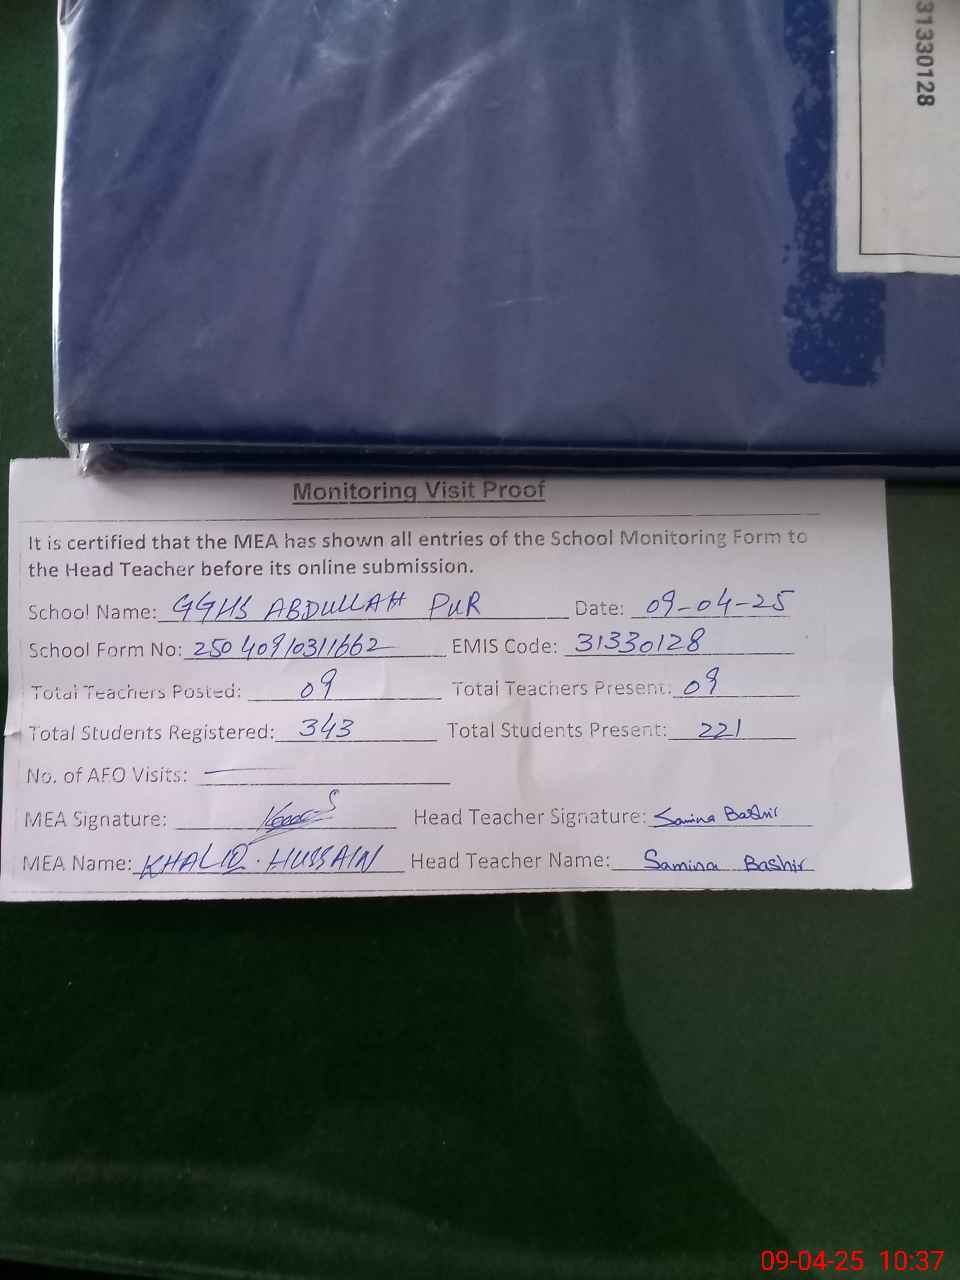 31330128
Monitoring Visit Proof
It is certified that the MEA has shown all entries of the School Monitoring Form to
the Head Teacher before its online submission.
School Name: GGHS ABDULLAH PUR Date: 09-04-25
School Form No: 25040910311662 EMIS Code: 31330128
Total Teachers Posted: 09 Total Teachers Present: 09
Total Students Registered: 343 Total Students Present: 221
No. of AFO Visits:
MEA Signature: Head Teacher Signature: Samina Bashir
MEA Name: KHALID. HUSSAIN Head Teacher Name: Samina Bashir
09-04-25 10:37